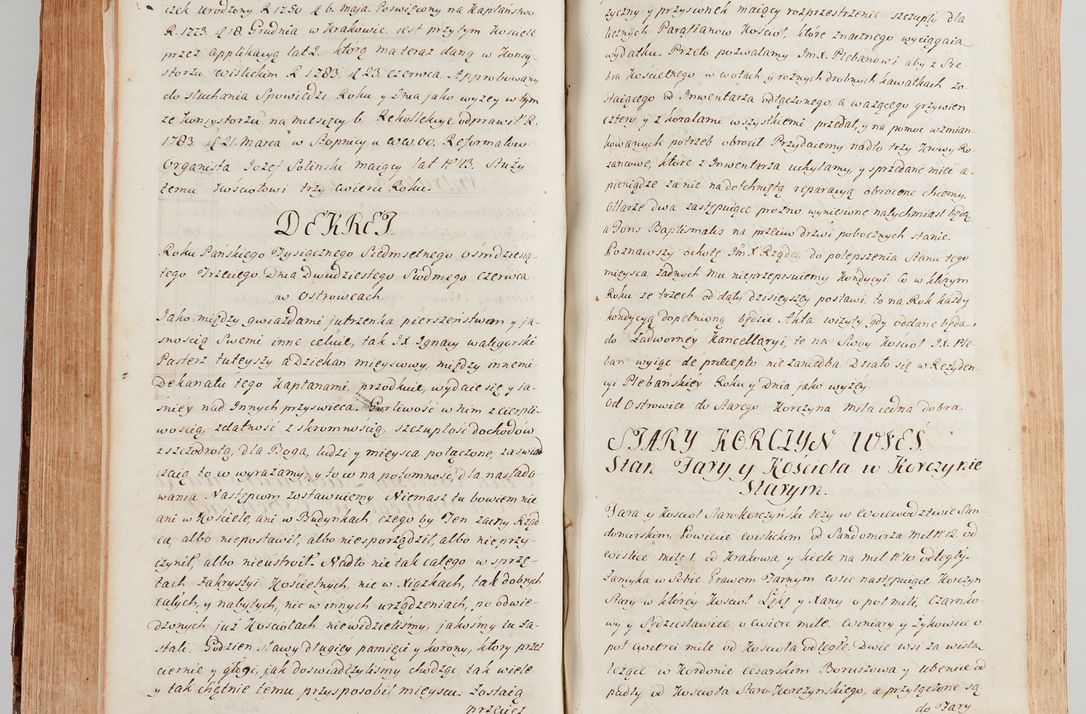 czek urodzony R 1750 d 6. maja. Poswięcony na Kapłanstwo
R. 1773 d 18. Grudnia w Krakowie. iest przy tym Kościele
przez applikacyą lat 2. ktorą ma teraz daną w Konsy-
storzu wislickim R 1783. d 23 czerwca. Approbowany
do słuchania Spowiedzi Roku y Dnia jako wyzey w tym-
ze konsystorzu na miesięcy 6. Rekollekcye odprawił R.
1783. d 21. Marca w Stopnicy u WW.OO. Reformatow
Organista Jozef Soliński maiący lat N 43. Służy
temu Kosciołowi trzy cwierci Roku.
DEKRET.
Roku Pańskiego Tysiącznego Siedmsetnego Osmdziesią-
tego Trzeciego Dnia Dwudziestego Siodmego czerwca
w Ostrowcach.
Jako między gwiazdami jutrzenka pierszeństwem y ja-
snością Swemi inne celuie, tak JX Ignacy walegorski
Pasterz tuteyszy a Dziekan mieyscowy, między innemi
Dekanatu tego Kapłanami, przodkuie, wydaie się y ia-
śniey nad Innych przyswieca. Gorliwość w nim z cierpli-
wością, zdatność z skromnością, szczupłość dochodow
z szczodrotą, dla Boga, ludzi y mieysca połączone, zaswiad
czaią to w wyrazamy, y to w na potomność, dla naslado-
wania Następcom zostawuiemy Niemasz tu bowiem nic
ani w Kościele, ani w Budynkach, czego by Ten zacny Rząd
ca, albo niepostawił, albo niesporządził, albo nieprzy-
czynił, albo nieustroił. Nadto nie tak całego w sprzę-
tach Zakrystyi Kościelnych, nic w Xiązkach, tak dobrych
całych, y nabytych, nic w innych urządzeniach, po odwie-
dzonych juz Kosciołach niewidzielismy, jakosmy tu za-
stali. Godzien sławy długiey pamięci y korony, ktory przez
ciernie y głogi, jak doswiadczylismy chodząc tak wiele
y tak chętnie temu przysposobił mieyscu. Zostaią
przeciez
życzny y przysionek maiący rozprzestrzenie szczupły dla
licznych Parafianow Koscioł, ktore znacznego wyciągaią
wydatku. Przeto pozwalamy Jm X. Plebanowi aby z Sre-
bra Kościelnego w wotach y roznych drobnych kawałkach zo-
staiącego od Inwentarza odłączonego, a wazącego grzywien
cztery y z koralami wszystkiemi przedał, y na pomoc wzmian-
kowanych potrzeb obrocił Przydaiemy nadto trzy Krowy Ro-
zancowe, ktore z Inwentarza uchylamy, y sprzedane miec a
pieniądze za nie nadotchniętą reparacyą obrocone chcemy.
Ołtarze dwa zastępuiące prozno wyniesione natychmiast będą
a Fons Baptismalis na przeciw drzwi pobocznych stanie.
Poznawszy ochotę Jm X Rządcy do polepszenia Stanu tego
mieysca zadnych mu nieprzepisuiemy Kondycyi Co w ktorym
Roku ze trzech od daty dzisieyszey postawi, to na Rok kazdy
kondycyą dopełnioną będzie Akta wizyty gdy oddane będą
do Zadworney Kancellaryi, te na Swoy Koscioł JX. Ple-
ban wyiąć de præcepto nie zaniedba Działo się w Rezyden-
cyi Plebańskiey Roku y Dnia jako wyzey.
Od Ostrowiec do Starego Korczyna mila iedna dobra.
STARY KORCZYN WIEŚ.
Stan Fary y Kościoła w Korczynie
Starym.
Fara y Koscioł Staro Korczyński lezy w Woiewodztwie San-
domirskim, Powiecie wislickim od Sandomirza Mil N 12. od
wislice milę 1. od Krakowa, y Kielc na mil N 10 odległy
Zamyka w Sobie Prawem Farnym wsie następuiące Korczyn
Stary w ktorey Koscioł Łękę y Xany o poł mili, Czarnko-
wy y Sędzisławice o cwierc mile. winiary y Zykowice o
poł cwierci mile od Kościoła odległe. Dwie wsi za wisłą
lezące w Kordonie cesarskim Boruszowa y ubenice od
padły od Koscioła Staro Korczyńskiego, a przyłączone są
do Fary